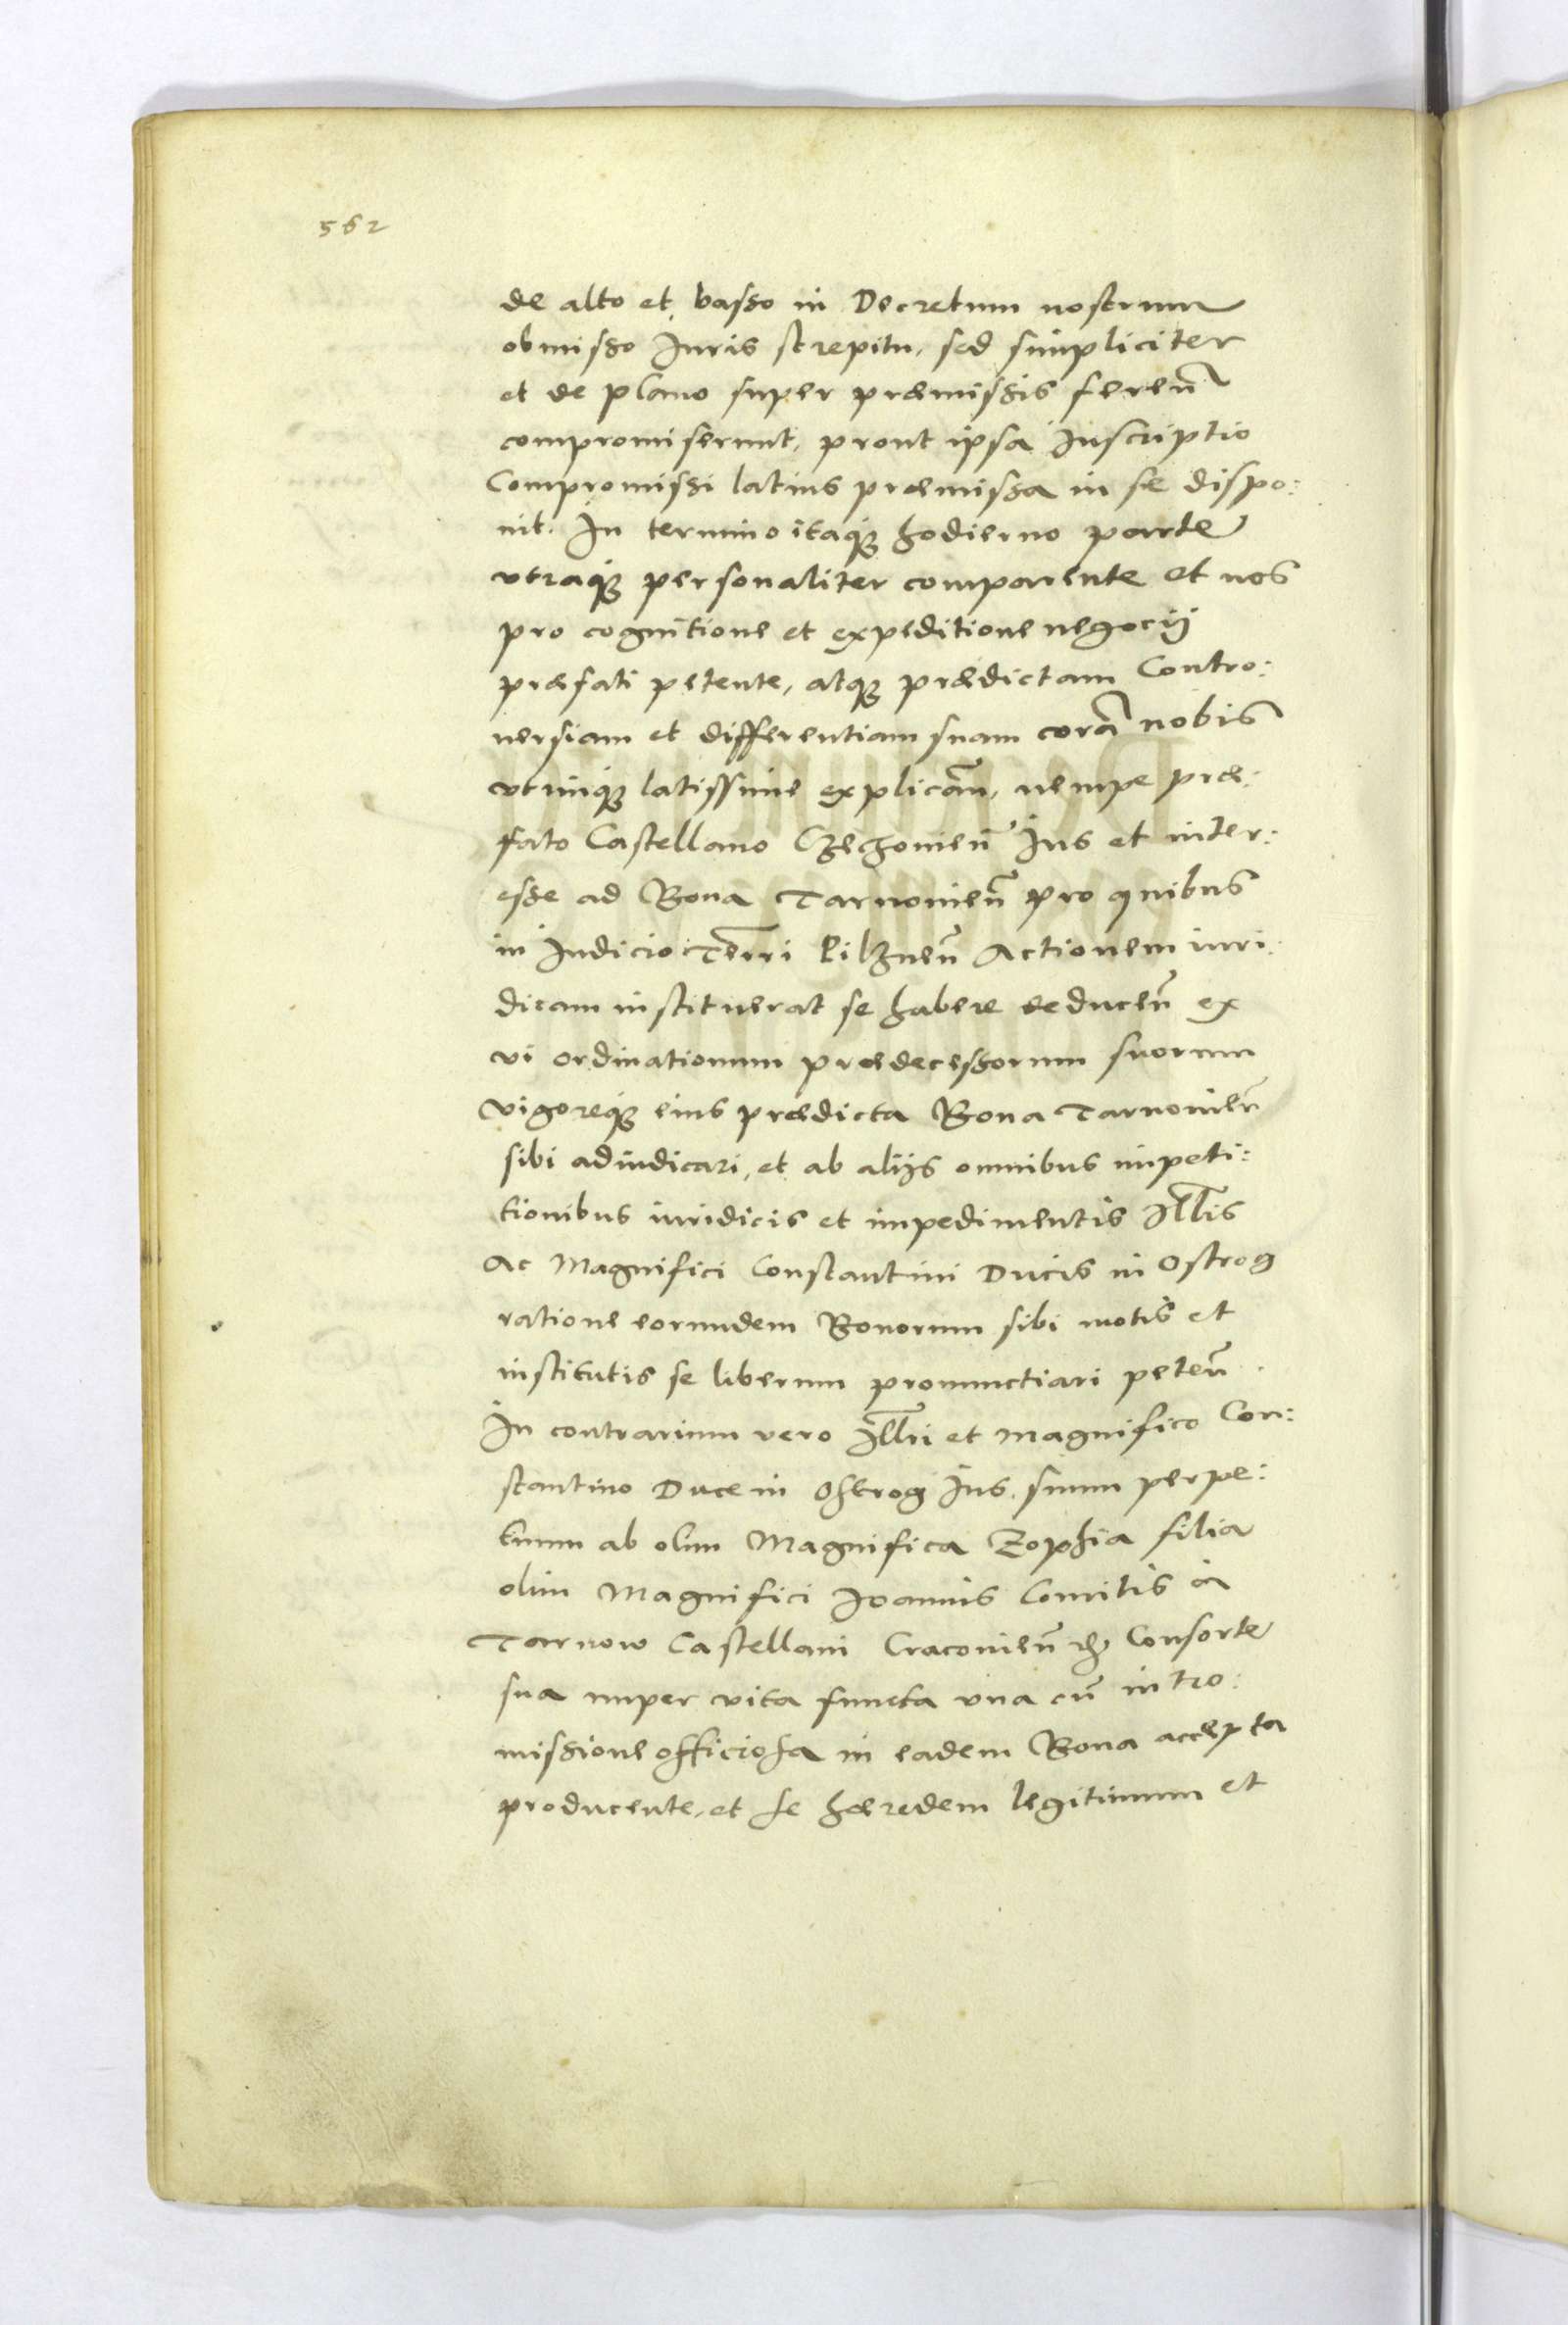 562
de alto et basso in Decretum nostrum
obmisso Iuris strepitu, sed simpliciter
et de plano super præmissis feren̄
compromiserunt, prout ipsa Inscriptio
Compromissi latius præmissa in se dispo:
nit. In termino itaq́ꝫ hodierno parte
vtraq́ꝫ personaliter comparente et nos
pro cognitione et expeditione negocij
præfati petente, atqꝫ prædictam Contro:
uersiam et differentiam suam corā nobis
vtrinq́ꝫ latissime explican̄, nempe præ:
fato Castellano Czechouien̄ Ius et inter:
esse ad Bona Tarnouien̄ pro quibus
in Iudicio Terri Pilznen̄ Actionem iuri:
dicam instituerat se habere deducen̄ ex
vi ordinationum prædecessorum suorum
vigoreq́ꝫ eius prædicta Bona Tarnouien̄
sibi adiudicari, et ab alijs omnibus impeti:
tionibus iuridicis et impedimentis Illis
Ac Magnifici Constantini Ducis in Ostrog
ratione eorumdem Bonorum sibi motis et
institutis se liberum pronunctiari peten̄.
In contrarium vero Illri et Magnifico Con:
stantino Duce in Ostrog Ius suum perpe:
tuum ab olim Magnifica Zophia filia
olim Magnifici Ioannis Comitis à
Tarnow Castellani Cracouien̄ &c Consorte
sua nuper vita functa vna cū intro:
missione officiosa in eadem Bona accepta
producente, et se hæredem legitimum et